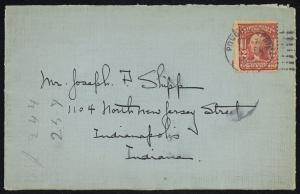 Mr. Joseph F Shipp
1104 North New Jersey Street
Indianapolis
Indiana
244